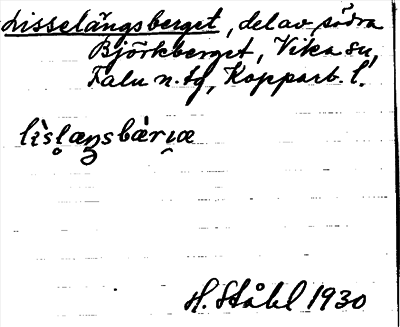 Lisselängsberget, del av södra
Björkberget, Vika sn,
Falu n. tg, Kopparb. l.
lìsl̥æŋsbæ̀rıæ
H. Ståhl 1930